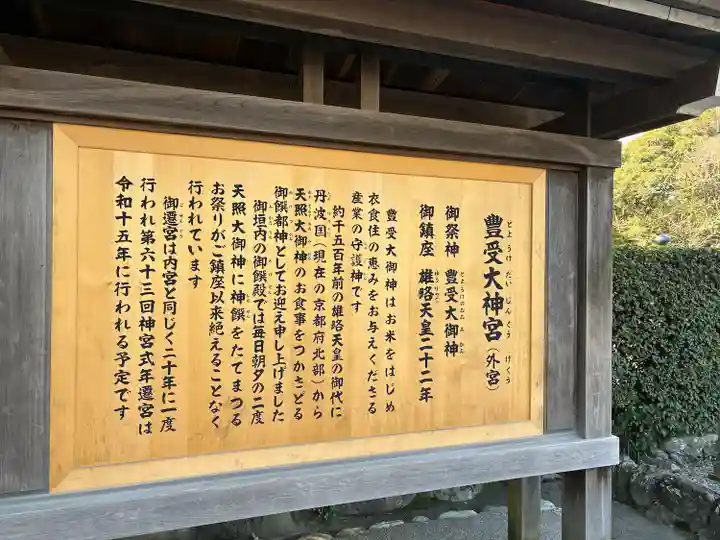 豊受大神宮(外宮)
とようけだいじんぐう げくう
御祭神 豊受大御神
とようけのおおみかみ
御鎮座 雄略天皇二十二年
ゆうりゃく
豊受大御神はお米をはじめ
衣食住の恵みをお与えくださる
産業の守護神です
約千五百年前の雄略天皇の御代に
丹波国(現在の京都府北部)から
天照大御神のお食事をつかさどる
御饌都神としてお迎え申し上げました
御垣内の御饌殿では毎日朝夕の二度
天照大御神に神饌をたてまつる
お祭りがご鎮座以来絶えることなく
行われています
御遷宮は内宮と同じく二十年に一度
行われ第六十三回神宮式年遷宮は
令和十五年に行われる予定です